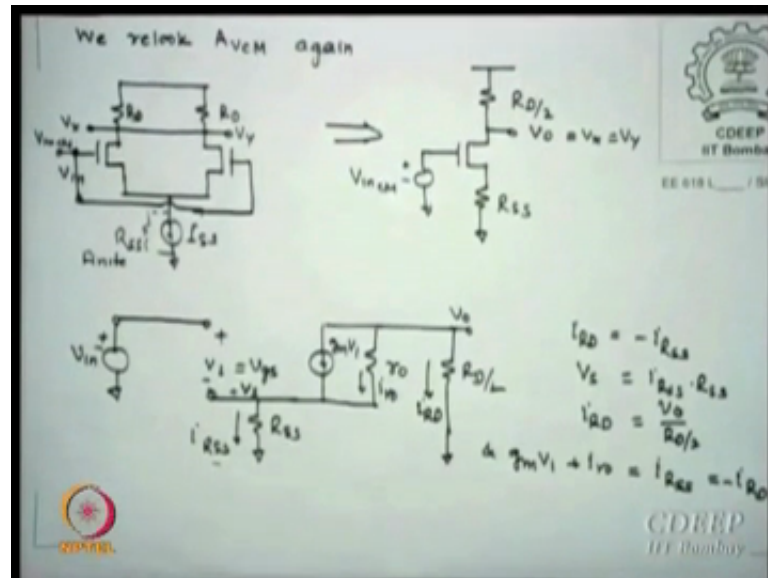 We relook AVCM again
RD
RD
Vx
Vy
Vin CM
Vin
RSS
ISS
finite
RD/2
Vo = Vx = Vy
Vin CM
RSS
CDEEP
IIT Bombay
EE 618 L___ / Sl
Vin
+
-
V1 = Vgs
iRSS
RSS
gmV1
ro
iro
Vo
iRD
RD/2
iRD = -iRSS
VS = iRSS . RSS
iRD = Vo / RD/2
& gmV1 + iro = iRSS = -iRD
NPTEL
CDEEP
IIT Bombay